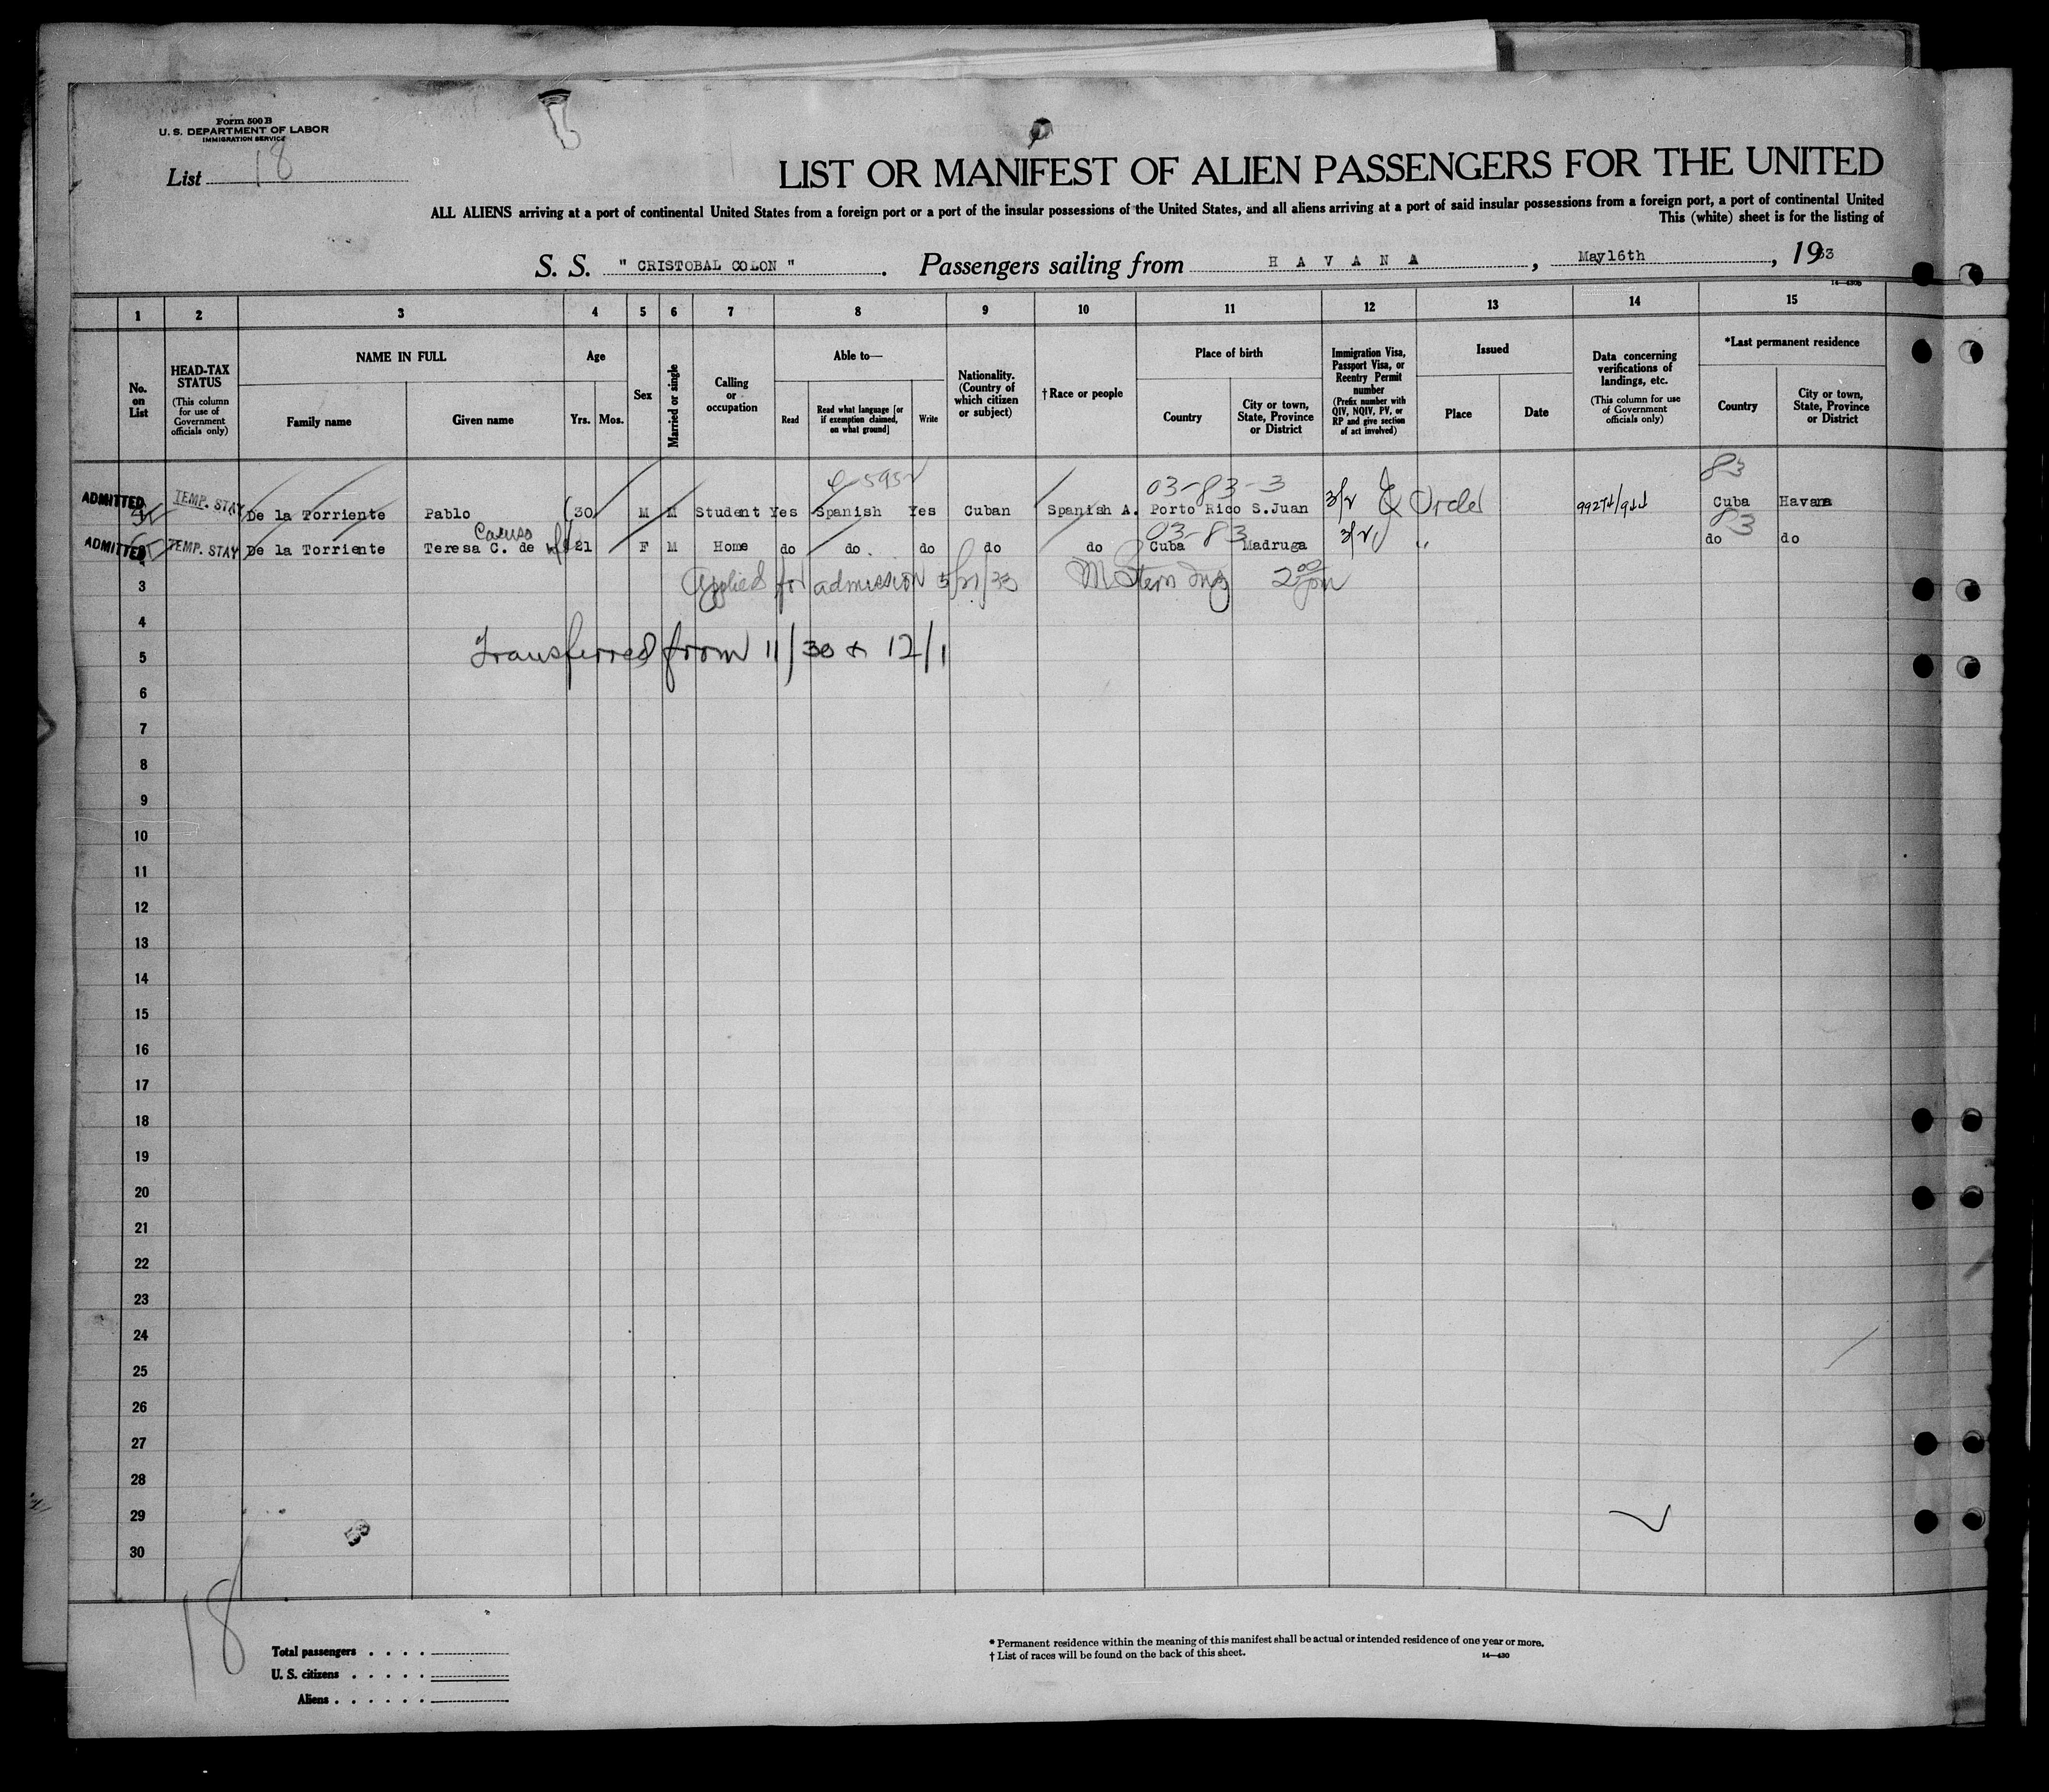 Form 500 B
U. S. DEPARTMENT OF LABOR
IMMIGRATION SERVICE
List 18
LIST OR MANIFEST OF ALIEN PASSENGERS FOR THE UNITED
ALL ALIENS arriving at a port of continental United States from a foreign port or a port of the insular possessions of the United States, and all aliens arriving at a port of said insular possessions from a foreign port, a port of continental United
This (white) sheet is for the listing of
S. S. " CRISTOBAL COLON " . Passengers sailing from H A V A N A , May16th , 1933
14—430b
1 2 3 4 5 6 7 8 9 10 11 12 13 14 15
No. on List
HEAD-TAX STATUS
(This column for use of Government officials only)
NAME IN FULL
Family name
Given name
Age
Yrs.
Mos.
Sex
Married or single
Calling or occupation
Able to—
Read
Read what language [or if exemption claimed, on what ground]
Write
Nationality. (Country of which citizen or subject)
† Race or people
Place of birth
Country
City or town, State, Province or District
Immigration Visa, Passport Visa, or Reentry Permit number
(Prefix number with QIV, NQIV, PV, or RP and give section of act involved)
Issued
Place
Date
Data concerning verifications of landings, etc.
(This column for use of Government officials only)
*Last permanent residence
Country
City or town, State, Province or District
03-83-3
83
ADMITTED TEMP. STAY De la Torriente Pablo 30 M M Student Yes Spanish Yes Cuban Spanish A. Porto Rico S.Juan 3/2 Cuba Havana
Caruso
03-83
83
ADMITTED TEMP. STAY De la Torriente Teresa C. de 21 F M Home do do do do do Cuba Madruga 3/2 " do do
3 Applied for admission 5/21/33 M Stern Ins 2 00 pm
4
5 Transferred from 11/30 & 12/1
6
7
8
9
10
11
12
13
14
15
16
17
18
19
20
21
22
23
24
25
26
27
28
29
30
18
Total passengers . . . .
U. S. citizens . . . . .
Aliens . . . . . .
* Permanent residence within the meaning of this manifest shall be actual or intended residence of one year or more.
† List of races will be found on the back of this sheet.
14—430